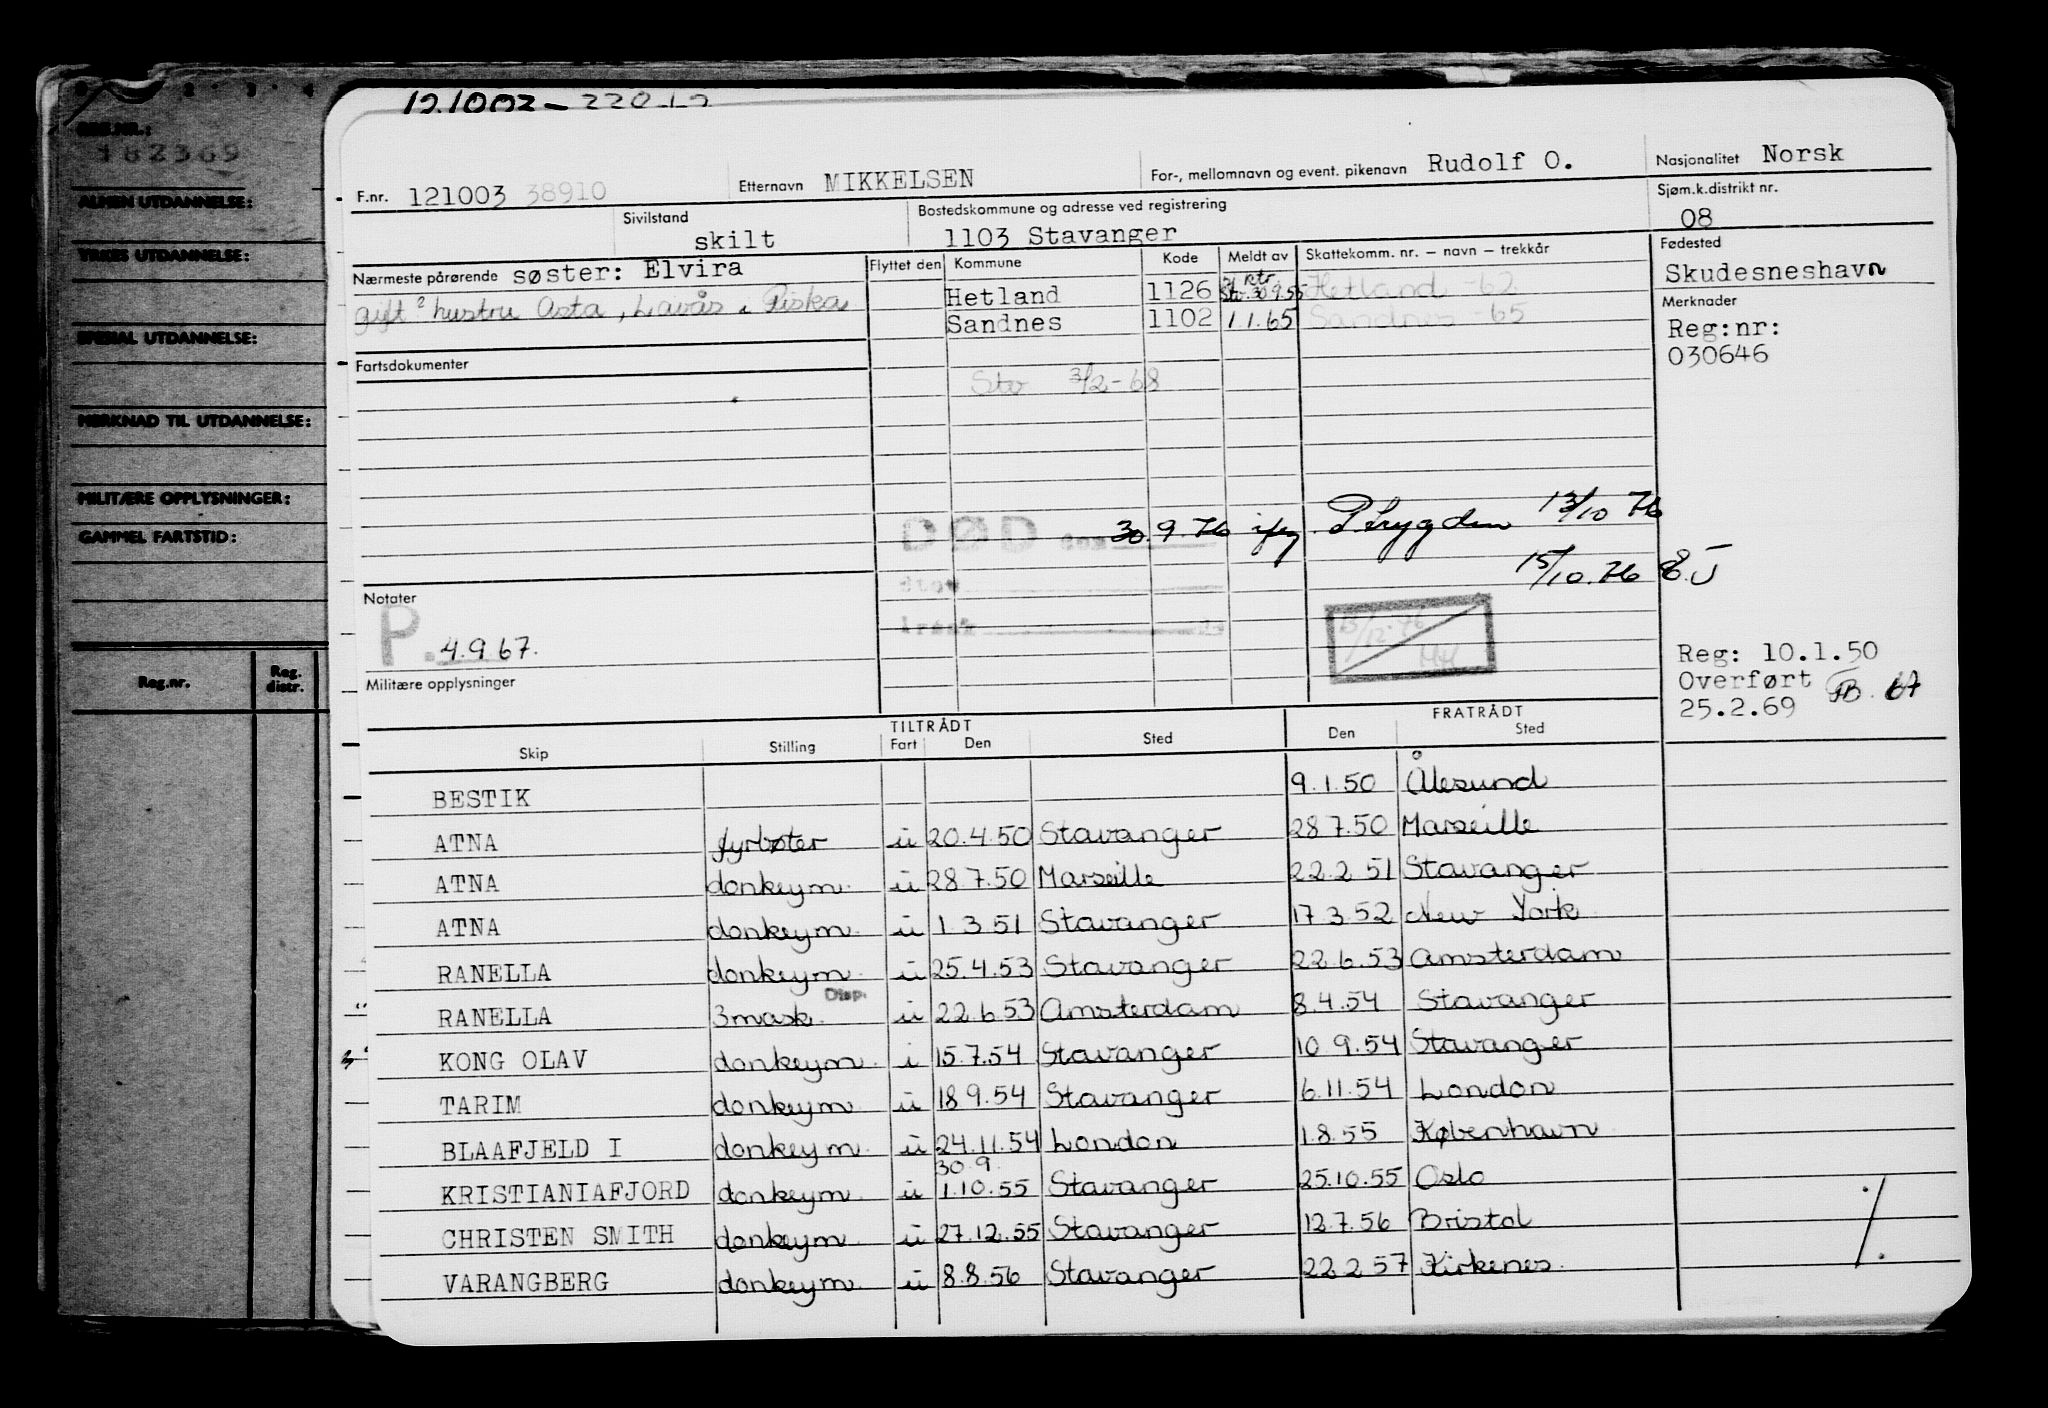 REG.NR.:
182369
ALMEN UTDANNELSE:
YRKES UTDANNELSE:
SPESIAL UTDANNELSE:
MERKNAD TIL UTDANNELSE:
MILITÆRE OPPLYSNINGER:
GAMMEL FARTSTID:
Reg.nr. Reg. distr.
F.nr. 121003 38910 Etternavn MIKKELSEN For-, mellomnavn og event. pikenavn Rudolf O. Nasjonalitet Norsk
Sivilstand skilt Bostedskommune og adresse ved registrering 1103 Stavanger Sjøm.k.distrikt nr. 08
Nærmeste pårørende søster: Elvira
gift hustru Asta, Lavås, Riska
Flyttet den Kommune Kode Meldt av Skattekomm. nr. – navn – trekkår
Hetland 1126 Stv. 30 9.55 Hetland -62
Sandnes 1102 1.1.65 Sandnes -65
Stv 3/2-68
Fødested
Skudesneshavn
Merknader
Reg:nr:
030646
Fartsdokumenter
DØD 30.9.76 ifg. P.trygden 13/10 76
15/10.76
Notater
P. 4.9.67.
Militære opplysninger
Reg: 10.1.50
Overført
25.2.69
TILTRÅDT FRATRÅDT
Skip Stilling Fart Den Sted Den Sted
BESTIK 9.1.50 Ålesund
ATNA fyrbøter u 20.4.50 Stavanger 28 7.50 Marseille
ATNA donkeym. u 28 7.50 Marseille 22.2 51 Stavanger
ATNA donkeym. u 1 3 51 Stavanger 17 3 52 New York
RANELLA donkeym. u 25.4.53 Stavanger 22 6.53 Amsterdam
RANELLA 3mask. Disp. u 22 6 53 Amsterdam 8.4.54 Stavanger
KONG OLAV donkeym. i 15.7.54 Stavanger 10 9.54 Stavanger
TARIM donkeym. u 18 9.54 Stavanger 6.11.54 London
BLAAFJELD I donkeym. u 24.11.54 London 1.8.55 København
KRISTIANIAFJORD donkeym. u 30.9. 1.10.55 Stavanger 25.10.55 Oslo
CHRISTEN SMITH donkeym. u 27.12.55 Stavanger 12.7.56 Bristol
VARANGBERG donkeym. u 8.8.56 Stavanger 22 2 57 Kirkenes.